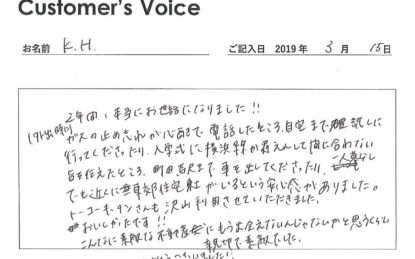 Customer's Voice
お名前 K.H. ご記入日 2019年 3月 15日
2年間、本当にお世話になりました!!
外出時に
ガスの止め忘れが心配で電話したところ、自宅まで確認しに
行ってくださったり、入学式に横浜線が遅えんして間に合わない
旨を伝えたところ、町田駅まで車を出してくださったり、一人暮らし
でも近くに住宅社がいるという安心感がありました。
トーコーキッチンさんも沢山利用させていただきました。
おいしかったです!!
こんなに素敵な不動産屋にもう出会えないんじゃないかと思うくらい
親切で素敵でした。
ございました!!